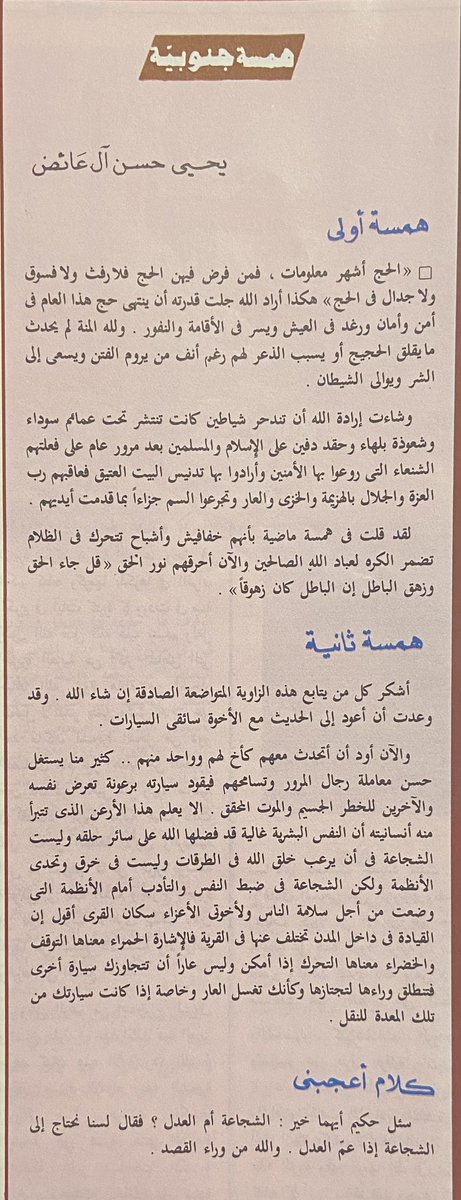 همسة جنوبيّة
يحيى حسن آل عَائض
همسة أولى
□ «الحج أشهر معلومات ، فمن فرض فيهن الحج فلارفث ولافسوق
ولاجدال فى الحج» هكذا أراد الله جلت قدرته أن ينتهى حج هذا العام فى
أمن وأمان ورغد فى العيش ويسر فى الأقامة والنفور . ولله المنة لم يحدث
مايقلق الحجيج أو يسبب الذعر لهم رغم أنف من يروم الفتن ويسعى إلى
الشر ويوالى الشيطان .
وشاءت إرادة الله أن تندحر شياطين كانت تنتشر تحت عمائم سوداء
وشعوذة بلهاء وحقد دفين على الإسلام والمسلمين بعد مرور عام على فعلتهم
الشنعاء التى روعوا بها الأمنين وأرادوا بها تدنيس البيت العتيق فعاقبهم رب
العزة والجلال بالهزيمة والخزى والعار وتجرعوا السم جزاءاً بما قدمت أيديهم .
لقد قلت فى همسة ماضية بأنهم خفافيش وأشباح تتحرك فى الظلام
تضمر الكره لعباد الله الصالحين والآن أحرقهم نور الحق «قل جاء الحق
وزهق الباطل إن الباطل كان زهوقاً» .
همسة ثانية
أشكر كل من يتابع هذه الزاوية المتواضعة الصادقة إن شاء الله . وقد
وعدت أن أعود إلى الحديث مع الأخوة سائقى السيارات .
والآن أود أن أتحدث معهم كأخ لهم وواحد منهم .. كثير منا يستغل
حسن معاملة رجال المرور وتسامحهم فيقود سيارته برعونة تعرض نفسه
والآخرين للخطر الجسيم والموت المحقق . الا يعلم هذا الأرعن الذى تتبرأ
منه أنسانيته أن النفس البشرية غالية قد فضلها الله على سائر حلقه وليست
الشجاعة فى أن يرعب خلق الله فى الطرقات وليست فى خرق وتحدى
الأنظمة ولكن الشجاعة فى ضبط النفس والتأدب أمام الأنظمة التى
وضعت من أجل سلامة الناس ولأخوتى الأعزاء سكان القرى أقول إن
القيادة فى داخل المدن تختلف عنها فى القرية فالإشارة الحمراء معناها التوقف
والخضراء معناها التحرك إذا أمكن وليس عاراً أن تتجاوزك سيارة أخرى
فتنطلق وراءها لتجتازها وكأنك تغسل العار وخاصة إذا كانت سيارتك من
تلك المعدة للنقل .
كلام أعجبنى
سئل حكيم أيهما خير : الشجاعة أم العدل ؟ فقال لسنا نحتاج إلى
الشجاعة إذا عمّ العدل . والله من وراء القصد .